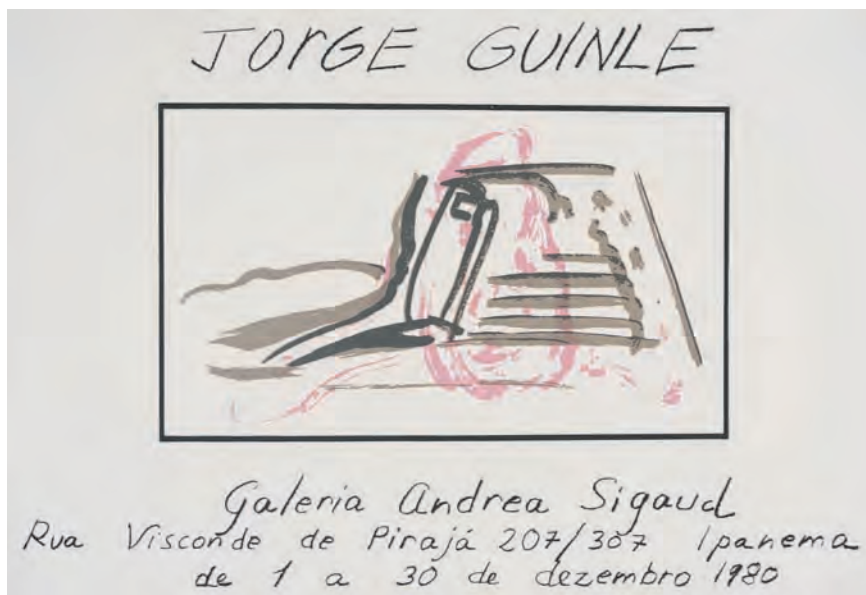 JORGE GUINLE
Galeria Andrea Sigaud
Rua Visconde de Pirajá 207/307 Ipanema
de 1 a 30 de dezembro 1980